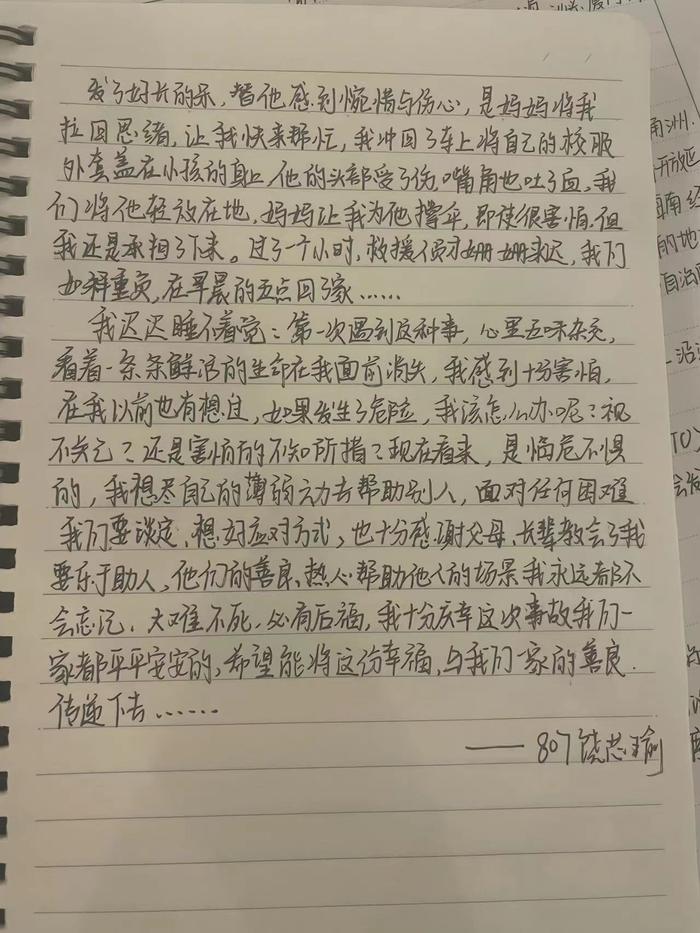 发了好长的呆，替他感到惋惜与伤心，是妈妈将我
拉回思绪，让我快来帮忙，我冲回了车上将自己的校服
外套盖在小孩的身上，他的头部受了伤，嘴角也吐了血，我
们将他轻放在地，妈妈让我为他撑伞，即使很害怕，但
我还是承担了下来。过了一个小时，救援人员才姗姗来迟，我们
如释重负，在早晨的五点回了家……
我迟迟睡不着觉：第一次遇到这种事，心里五味杂交，
看着一条条鲜活的生命在我面前消失，我感到十分害怕，
在我以前也有想过，如果发生了危险，我该怎么办呢？视
不关己？还是害怕的不知所措？现在看来，是临危不惧
的，我想尽自己的薄弱之力去帮助别人，面对任何困难
我们要淡定，想好应对方式，也十分感谢父母、长辈教会了我
要乐于助人，他们的善良、热心帮助他人的场景我永远都不
会忘记，大难不死，必有后福，我十分庆幸这次事故我们一
家都平平安安的，希望能将这份幸福，与我们一家的善良
传递下去……
——807饶芯瑜